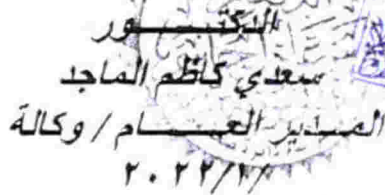 الدكتـــــور
سعدي كاظم الماجد
المـدير العــــام / وكالة
٢٠٢٢/٢/